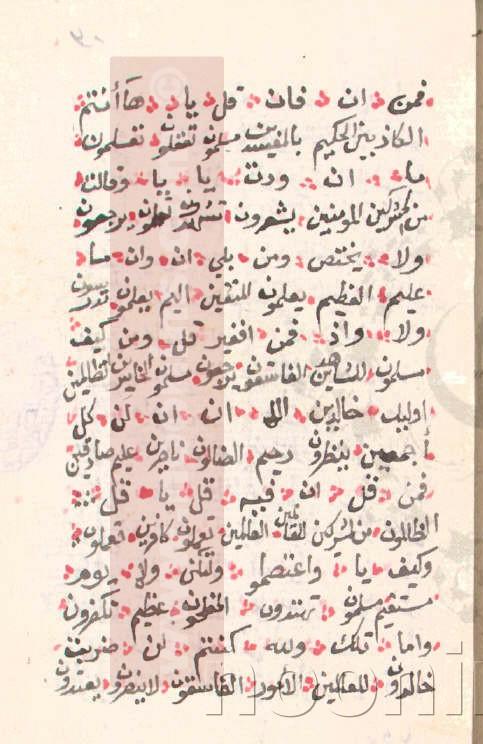 فمن ان فان قل يا ها أنتم
الكاذبين الحكيم بالمفسدين مسلمون تعقلون تعلمون
ما ان ودت يا يا وقالت
من المشركين المومنين يشعرون تشهدون تعلمون يرجعون
ولا يختص ومن بلي ان وان ما
عليم العظيم يعلمون المتقين اليم يعلمون تدرسون
ولا واذ فمن افغير قل ومن كيف
مسلمون الشاهدين الفاسقون يرجعون مسلمون الخاسرين الظالمين
اوليك خالدين الا ان ان لن كل
أجمعين ينظرون رحيم الضالون ناصرين عليم صادقين
فمن قل ان فيه قل يا قل
الظالمون من المشركين للعالمين العالمين تعملون كافرين تعملون
وكيف يا واعتصموا ولتكن ولا يوم
مستقيم مسلمون تهتدون المفلحون عظيم تكفرون
واما تلك ولله كنتم لن ضربت
خالدون للعالمين الأمور الفاسقون لاينصرون يعتدون
noo